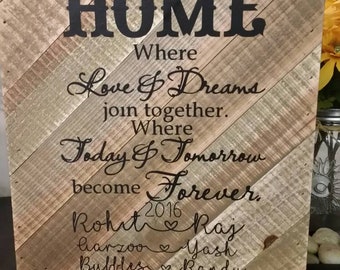 HOME
Where
Love & Dreams
join together.
Where
Today & Tomorrow
become Forever.
2016
Rohit Raj
Aarzoo Yash